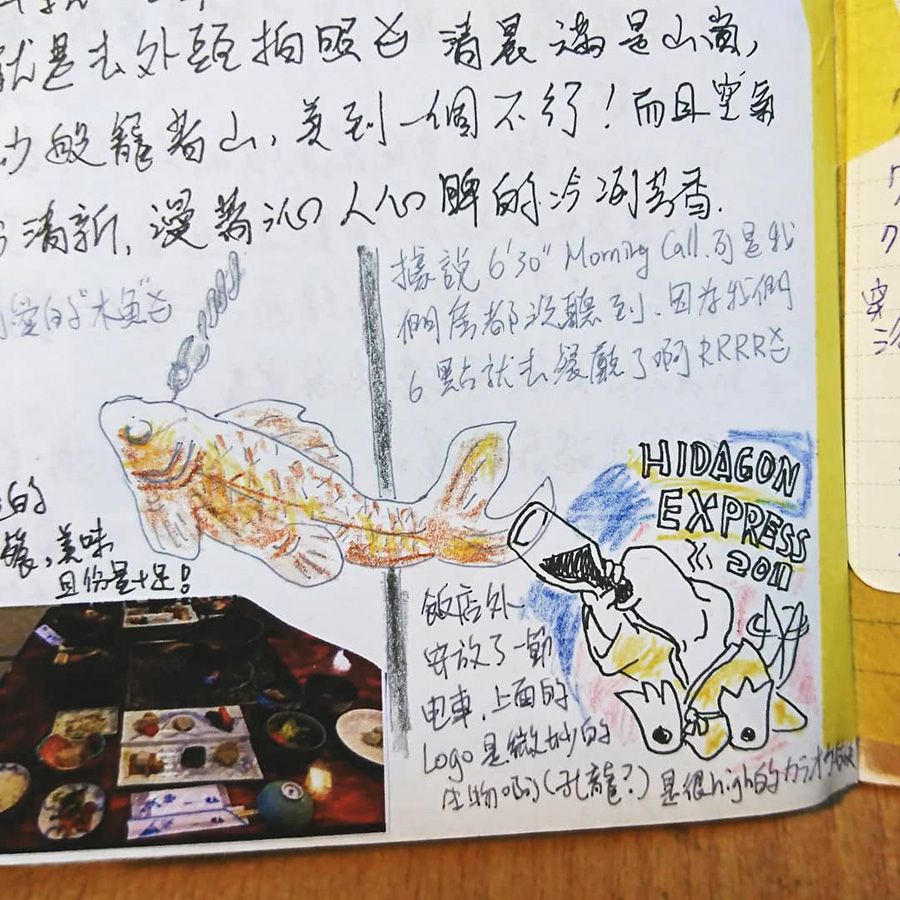 就是去外頭拍照 清晨滿是山嵐,
紗般籠著山, 美到一個不行！而且空氣
清新, 漫著沁人心脾的冷冽芳香.
愛的"木魚"
據說 6'30" Morning Call. 可是我
們房都沒聽到. 因為我們
6點就去餐廳了啊 RRRR
的
餐, 美味
且份量十足!
HIDAGON
EXPRESS
2011
飯店外
安放了一節
電車, 上面的
Logo 是微妙的
生物啊(孔龍?) 是很high的カラオケ